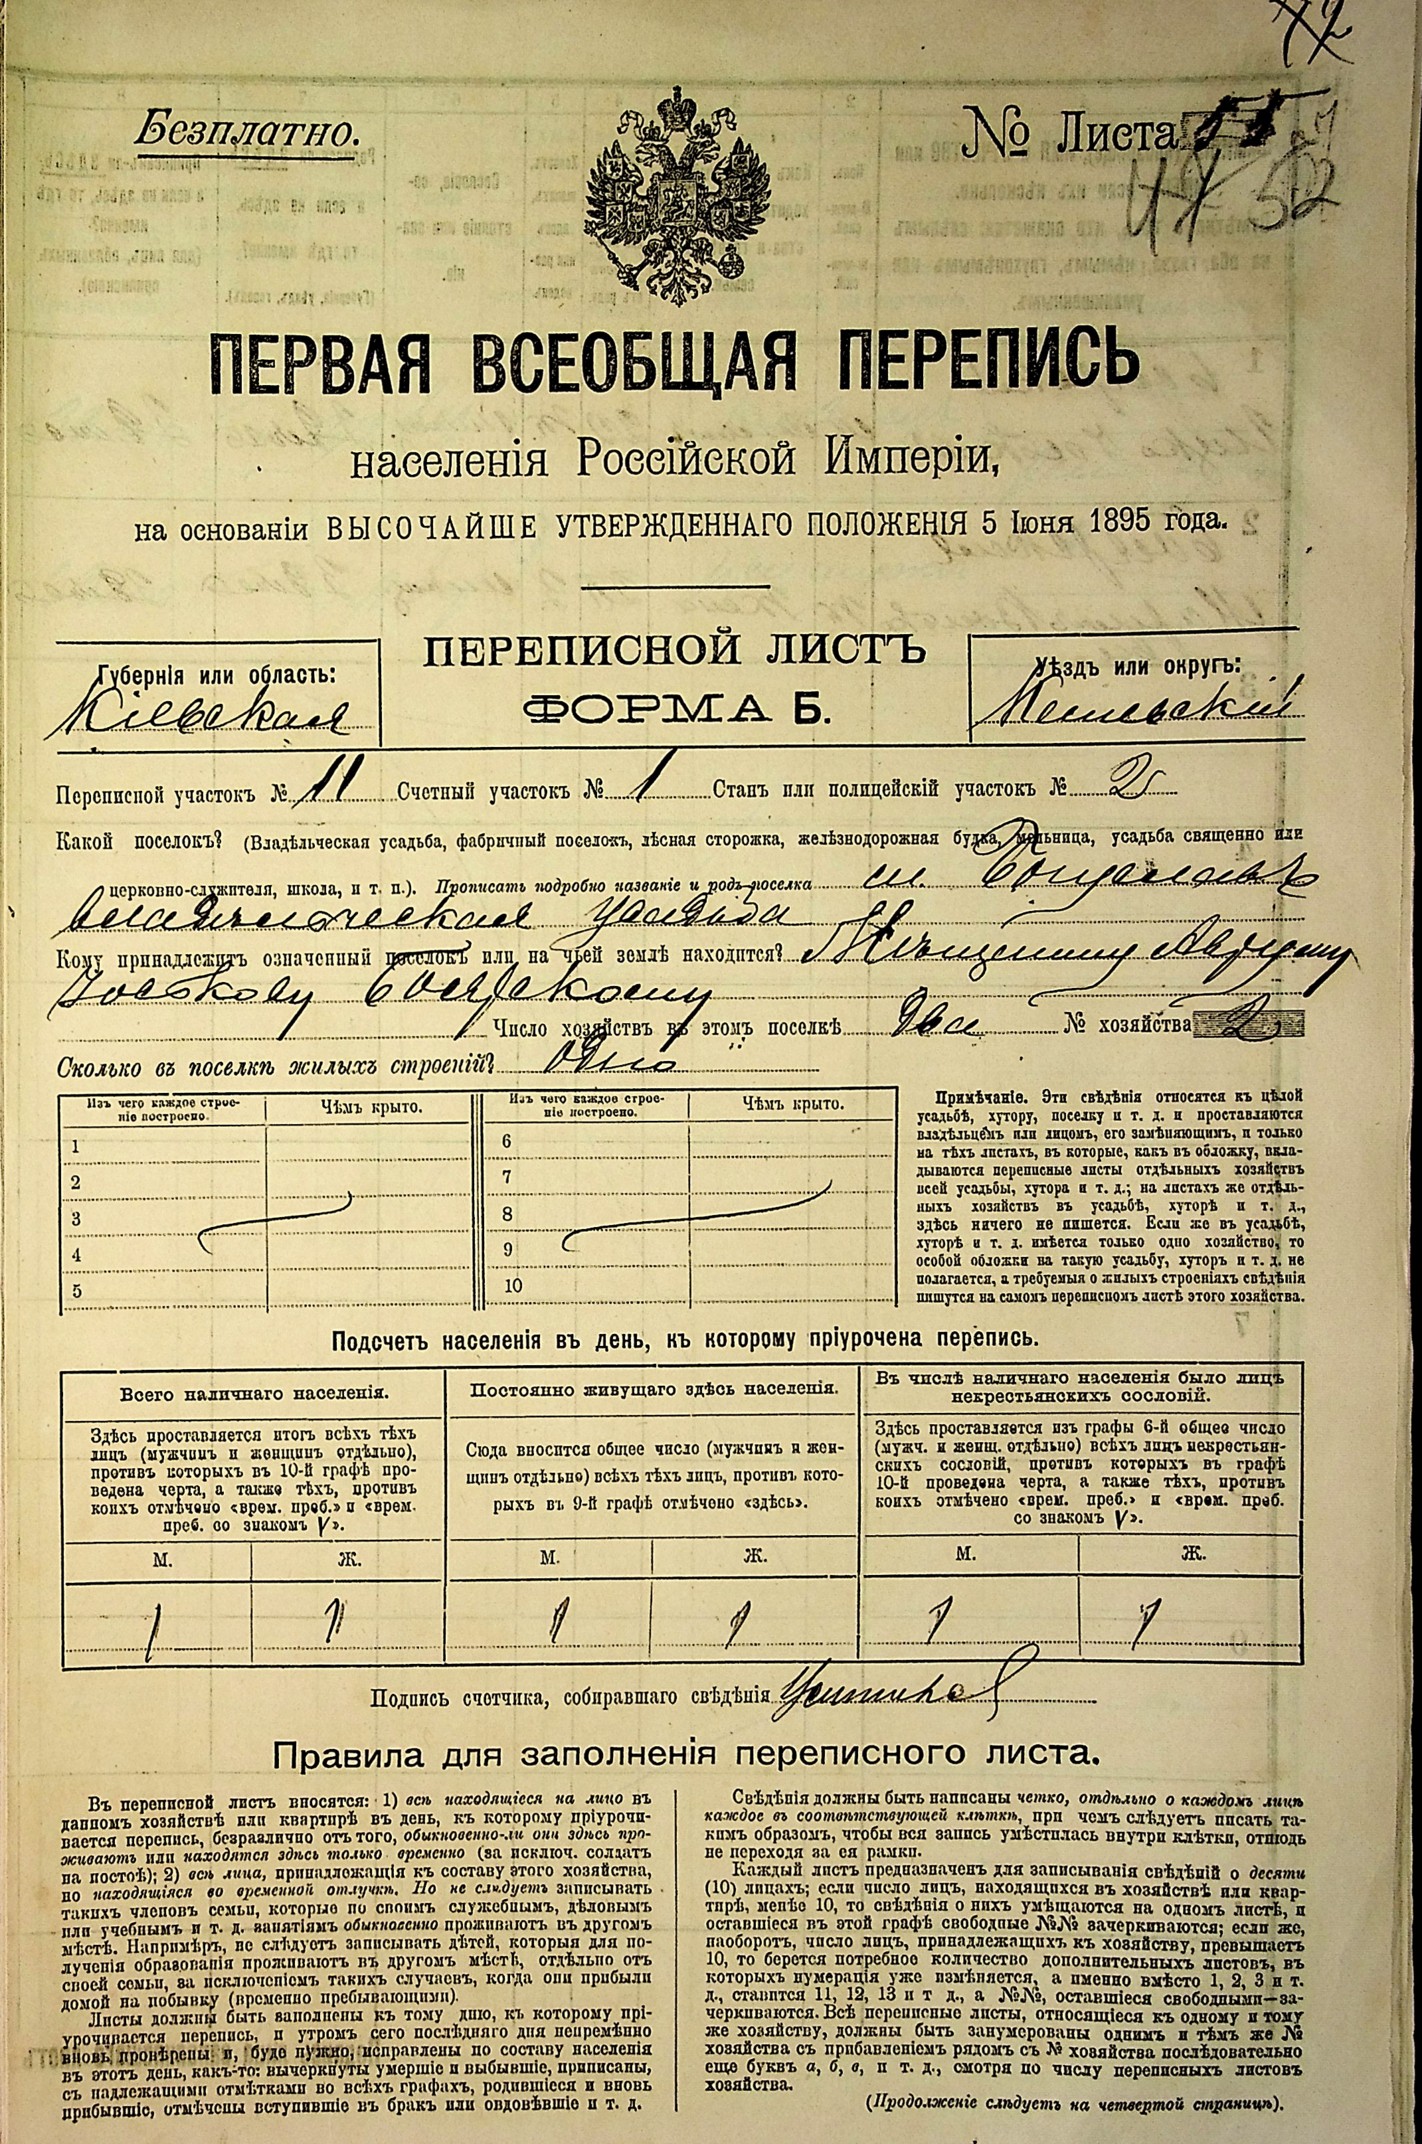 Безплатно.
№ Листа
52
ПЕРВАЯ ВСЕОБЩАЯ ПЕРЕПИСЬ
населенія Россійской Имперіи,
на основаніи ВЫСОЧАЙШЕ УТВЕРЖДЕННАГО ПОЛОЖЕНІЯ 5 Іюня 1895 года.
ПЕРЕПИСНОЙ ЛИСТЪ
ФОРМА Б.
Губернія или область:
Кіевская
Уѣздъ или округъ:
Переписной участокъ № 11 Счетный участокъ № 1 Станъ или полицейскій участокъ № 2
Какой поселокъ? (Владѣльческая усадьба, фабричный поселокъ, лѣсная сторожка, желѣзнодорожная будка, мельница, усадьба священно или
церковно-служителя, школа, и т. п.). Прописать подробно названіе и родъ поселка
владѣльческая усадьба
Кому принадлежитъ означенный поселокъ или на чьей землѣ находится? Мѣщанину
Число хозяйствъ въ этомъ поселкѣ два № хозяйства 2
Сколько въ поселкѣ жилыхъ строеній? одно
Изъ чего каждое строеніе построено. Чѣмъ крыто. Изъ чего каждое строеніе построено. Чѣмъ крыто.
1 6
2 7
3 8
4 9
5 10
Примѣчаніе. Эти свѣдѣнія относятся къ цѣлой
усадьбѣ, хутору, поселку и т. д. и проставляются
владѣльцемъ или лицомъ, его замѣняющимъ, и только
на тѣхъ листахъ, въ которые, какъ въ обложку, вкла-
дываются переписные листы отдѣльныхъ хозяйствъ
всей усадьбы, хутора и т. д.; на листахъ же отдѣль-
ныхъ хозяйствъ въ усадьбѣ, хуторѣ и т. д.,
здѣсь ничего не пишется. Если же въ усадьбѣ,
хуторѣ и т. д. имѣется только одно хозяйство, то
особой обложки на такую усадьбу, хуторъ и т. д. не
полагается, а требуемыя о жилыхъ строеніяхъ свѣдѣнія
пишутся на самомъ переписномъ листѣ этого хозяйства.
Подсчетъ населенія въ день, къ которому пріурочена перепись.
Всего наличнаго населенія.
Здѣсь проставляется итогъ всѣхъ тѣхъ
лицъ (мужчинъ и женщинъ отдѣльно),
противъ которыхъ въ 10-й графѣ про-
ведена черта, а также тѣхъ, противъ
коихъ отмѣчено «врем. преб.» и «врем.
преб. со знакомъ V».
Постоянно живущаго здѣсь населенія.
Сюда вносится общее число (мужчинъ и жен-
щинъ отдѣльно) всѣхъ тѣхъ лицъ, противъ кото-
рыхъ въ 9-й графѣ отмѣчено «здѣсь».
Въ числѣ наличнаго населенія было лицъ
некрестьянскихъ сословій.
Здѣсь проставляется изъ графы 6-й общее число
(мужч. и женщ. отдѣльно) всѣхъ лицъ некрестьян-
скихъ сословій, противъ которыхъ въ графѣ
10-й проведена черта, а также тѣхъ, противъ
коихъ отмѣчено «врем. преб.» и «врем. преб.
со знакомъ V».
М. Ж. М. Ж. М. Ж.
1 1 1 1 1 1
Подпись счетчика, собиравшаго свѣдѣнія
Правила для заполненія переписного листа.
Въ переписной листъ вносятся: 1) всѣ находящіеся на лицо въ
данномъ хозяйствѣ или квартирѣ въ день, къ которому пріурочи-
вается перепись, безразлично отъ того, обыкновенно-ли они здѣсь про-
живаютъ или находятся здѣсь только временно (за исключ. солдатъ
на постоѣ); 2) всѣ лица, принадлежащія къ составу этого хозяйства,
но находящіяся во временной отлучкѣ. Но не слѣдуетъ записывать
такихъ членовъ семьи, которые по своимъ служебнымъ, дѣловымъ
или учебнымъ и т. д. занятіямъ обыкновенно проживаютъ въ другомъ
мѣстѣ. Напримѣръ, не слѣдуетъ записывать дѣтей, которыя для по-
лученія образованія проживаютъ въ другомъ мѣстѣ, отдѣльно отъ
своей семьи, за исключеніемъ такихъ случаевъ, когда они прибыли
домой на побывку (временно пребывающими).
Листы должны быть заполнены къ тому дню, къ которому прі-
урочивается перепись, и утромъ сего послѣдняго дня непремѣнно
вновь провѣрены и, буде нужно, исправлены по составу населенія
въ этотъ день, какъ-то: вычеркнуты умершіе и выбывшіе, приписаны,
съ надлежащими отмѣтками во всѣхъ графахъ, родившіеся и вновь
прибывшіе, отмѣчены вступившіе въ бракъ или овдовѣвшіе и т. д.
Свѣдѣнія должны быть написаны четко, отдѣльно о каждомъ лицѣ
каждое въ соотвѣтствующей клѣткѣ, при чемъ слѣдуетъ писать та-
кимъ образомъ, чтобы вся запись умѣстилась внутри клѣтки, отнюдь
не переходя за ея рамки.
Каждый листъ предназначенъ для записыванія свѣдѣній о десяти
(10) лицахъ; если число лицъ, находящихся въ хозяйствѣ или квар-
тирѣ, менѣе 10, то свѣдѣнія о нихъ умѣщаются на одномъ листѣ, и
оставшіеся въ этой графѣ свободные №№ зачеркиваются; если же,
наоборотъ, число лицъ, принадлежащихъ къ хозяйству, превышаетъ
10, то берется потребное количество дополнительныхъ листовъ, въ
которыхъ нумерація уже измѣняется, а именно вмѣсто 1, 2, 3 и т.
д., ставится 11, 12, 13 и т д., а №№, оставшіеся свободными—за-
черкиваются. Всѣ переписные листы, относящіеся къ одному и тому
же хозяйству, должны быть занумерованы однимъ и тѣмъ же №
хозяйства съ прибавленіемъ рядомъ съ № хозяйства послѣдовательно
еще буквъ а, б, в, и т. д., смотря по числу переписныхъ листовъ
хозяйства.
(Продолженіе слѣдуетъ на четвертой страницѣ).